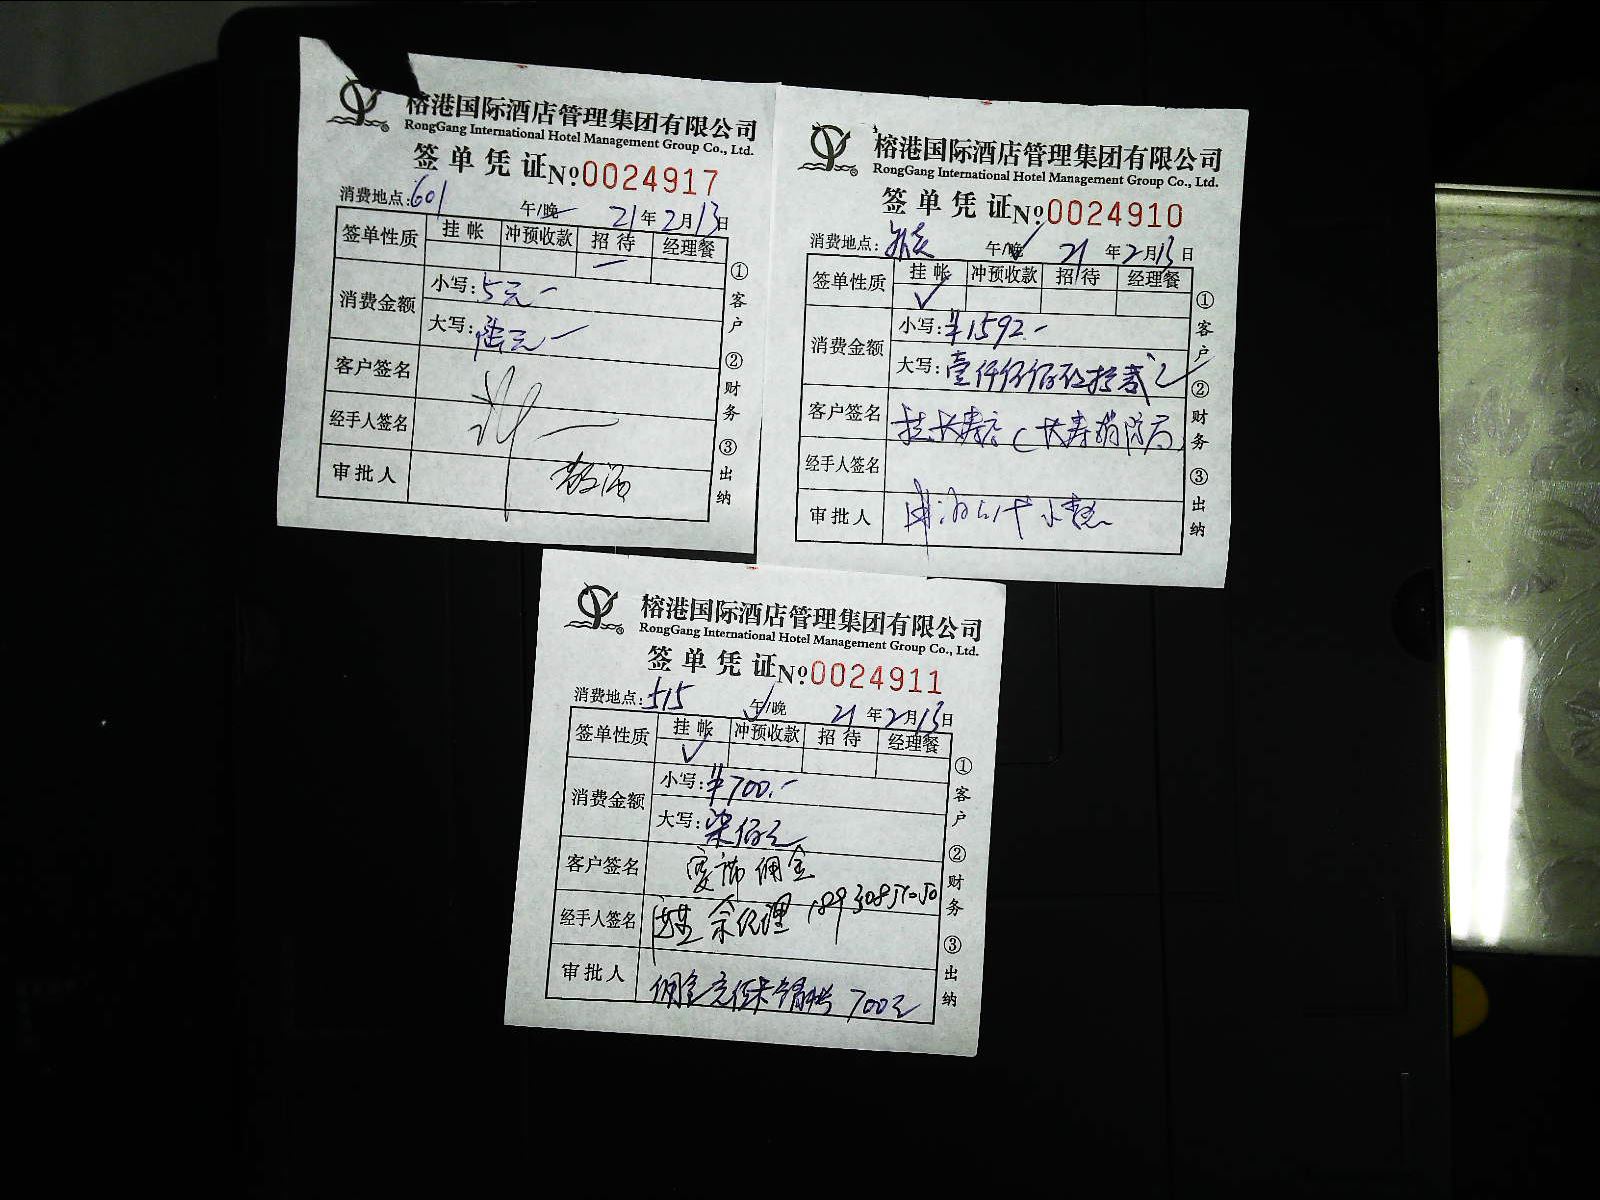 榕港国际酒店管理集团有限公司
RongGang International Hotel Management Group Co., Ltd.
签单凭证 Nº 0024917
消费地点: 601 午/晚 21年2月13日
签单性质 挂帐 冲预收款 招待 经理餐
消费金额 小写: 5元
大写: 元
客户签名
经手人签名
审批人
①客户 ②财务 ③出纳
榕港国际酒店管理集团有限公司
RongGang International Hotel Management Group Co., Ltd.
签单凭证 Nº 0024910
消费地点: 午/晚 21年2月13日
签单性质 挂帐 冲预收款 招待 经理餐
消费金额 小写: ¥1592.-
大写: 壹仟伍佰玖拾贰元
客户签名 挂长寿店(长寿消防局
经手人签名
审批人
①客户 ②财务 ③出纳
榕港国际酒店管理集团有限公司
RongGang International Hotel Management Group Co., Ltd.
签单凭证 Nº 0024911
消费地点: 515 午/晚 21年2月13日
签单性质 挂帐 冲预收款 招待 经理餐
消费金额 小写: ¥700.-
大写: 柒佰元
客户签名 宴席佣金
经手人签名 余经理
审批人 佣金充值卡 700元
①客户 ②财务 ③出纳